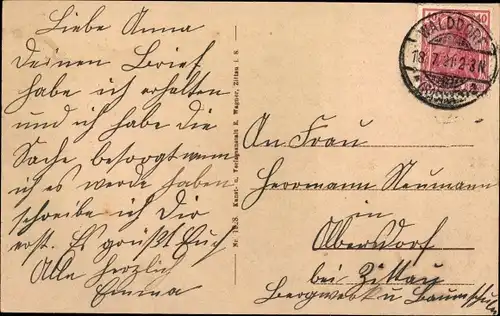 Liebe Anna
Deinen Brief
habe ich erhalten
und ich habe die
Sache besorgt wenn
ich es werde haben
schreibe ich Dir
erst. Es grüßt Euch
Alle herzlich
Emma
Nr. Kunst- u. Verlagsanstalt R. Wagner, Zittau i. S.
WALDDORF
18.7. 2-3N
An Frau
Herrmann Neumann
in
Olbersdorf
bei Zittau
Bergwerk u Baumschule